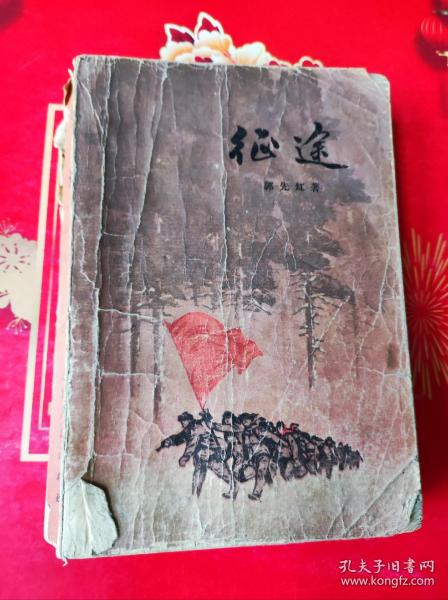 征途
郭先红著
孔夫子旧书网
www.kongfz.com